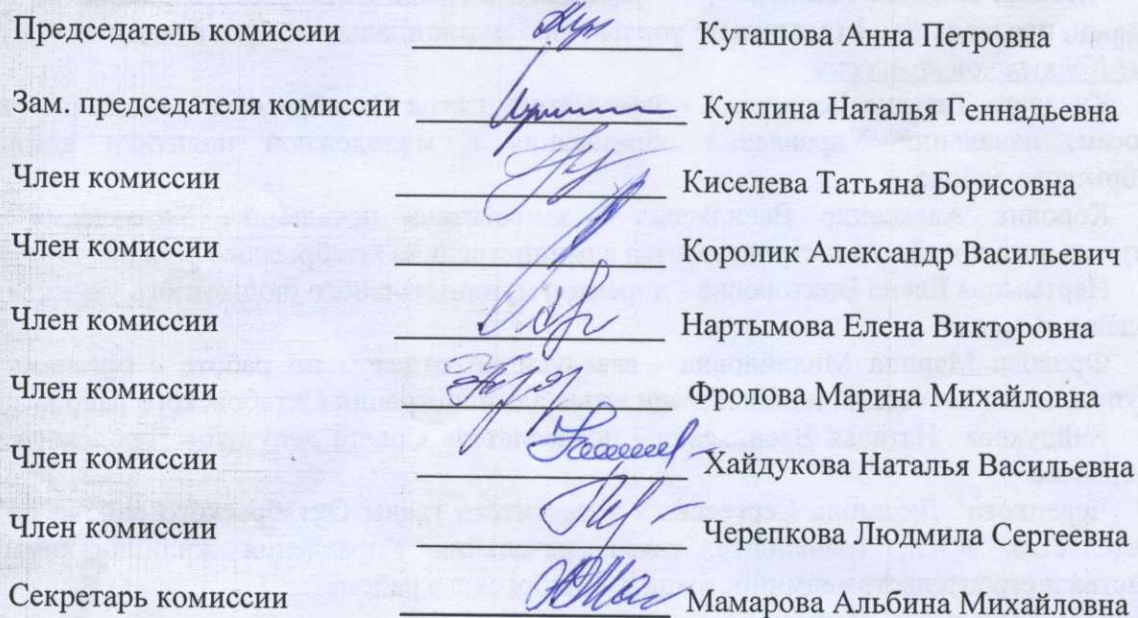 Председатель комиссии Куташова Анна Петровна
Зам. председателя комиссии Куклина Наталья Геннадьевна
Член комиссии Киселева Татьяна Борисовна
Член комиссии Королик Александр Васильевич
Член комиссии Нартымова Елена Викторовна
Член комиссии Фролова Марина Михайловна
Член комиссии Хайдукова Наталья Васильевна
Член комиссии Черепкова Людмила Сергеевна
Секретарь комиссии Мамарова Альбина Михайловна